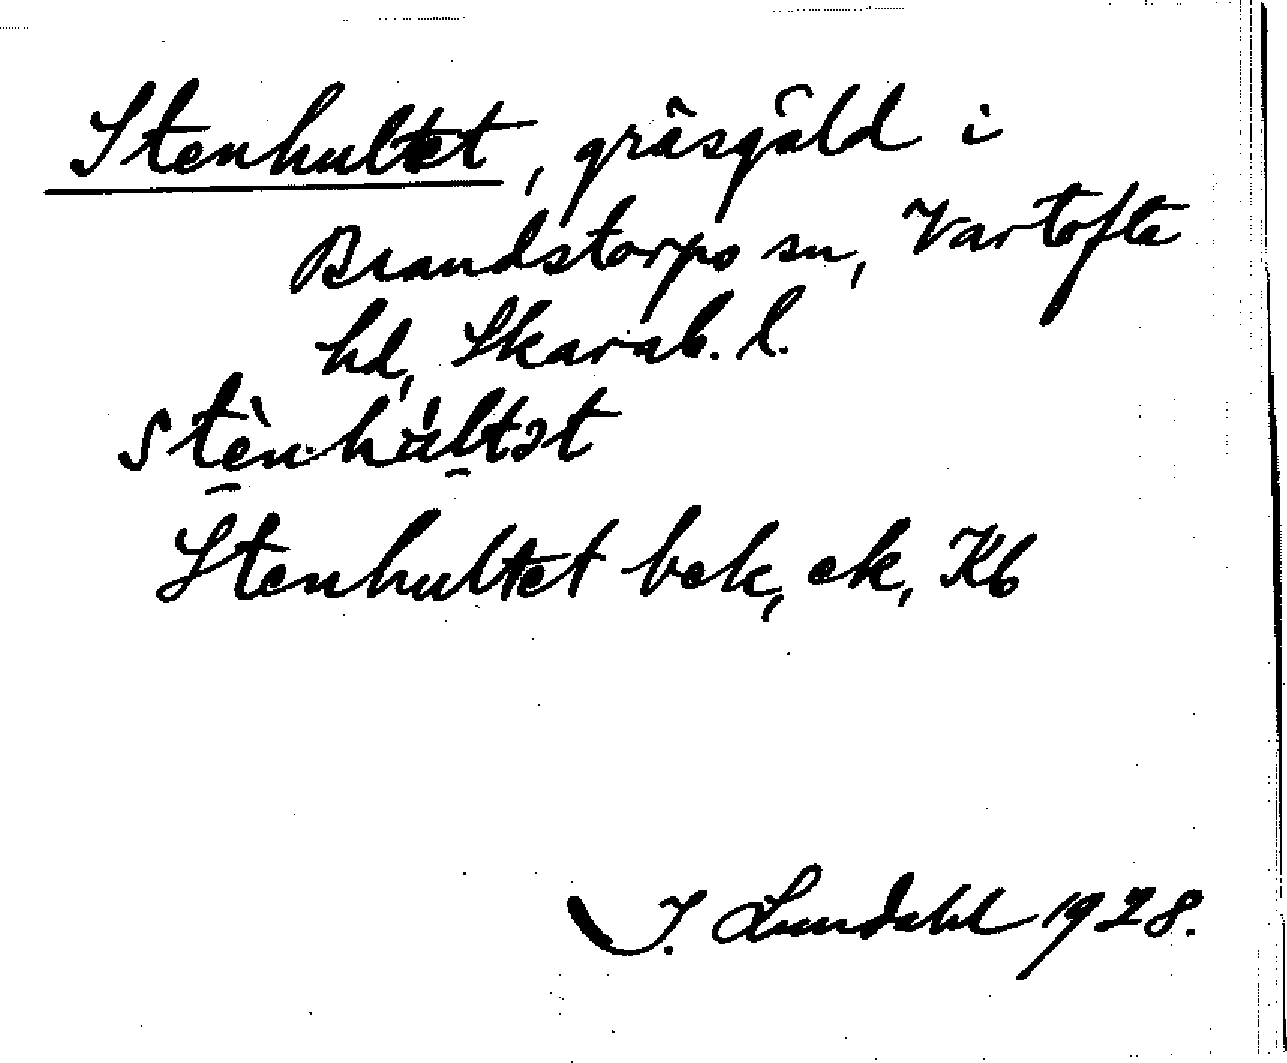 Stenhultet, gräsgäld i
Brandstorps sn, Vartofta
hd, Skarab. l.
stè̠n·húl̠tət
Stenhultet bek, ek, Kb
I. Lundahl 1928.